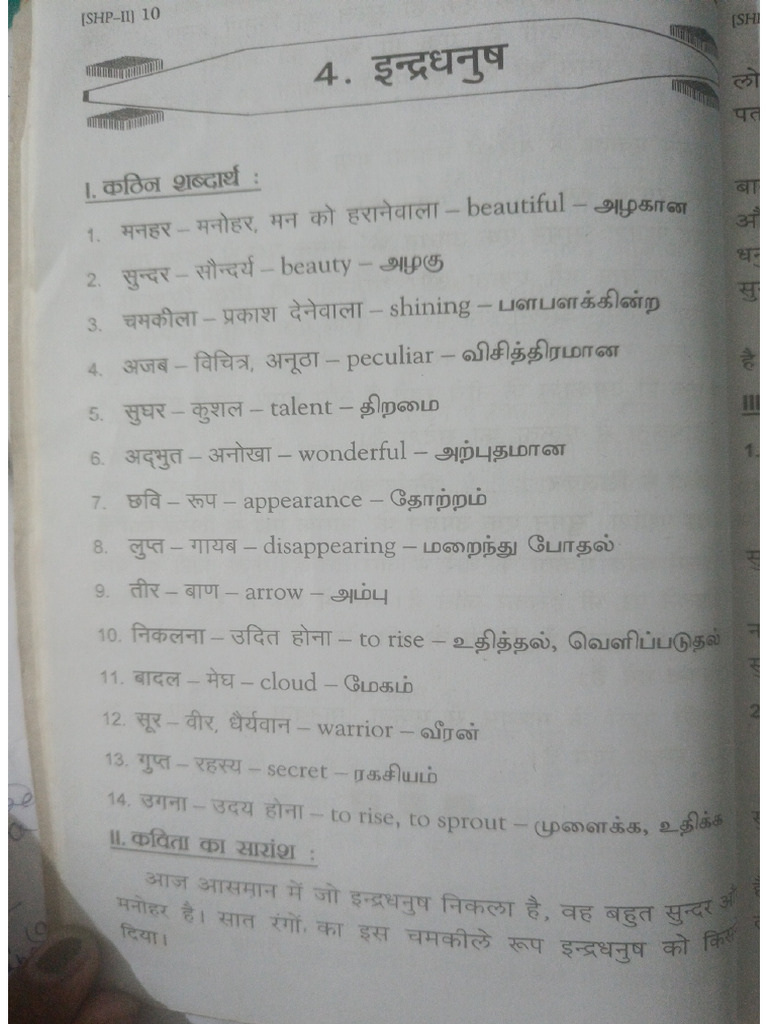 [SHP-II] 10
4. इन्द्रधनुष
I. कठिन शब्दार्थ :
1. मनहर – मनोहर, मन को हरानेवाला – beautiful – அழகான
2. सुन्दर – सौन्दर्य – beauty – அழகு
3. चमकीला – प्रकाश देनेवाला – shining – பளபளக்கின்ற
4. अजब – विचित्र, अनूठा – peculiar – விசித்திரமான
5. सुघर – कुशल – talent – திறமை
6. अद्‌भुत – अनोखा – wonderful – அற்புதமான
7. छवि – रूप – appearance – தோற்றம்
8. लुप्त – गायब – disappearing – மறைந்து போதல்
9. तीर – बाण – arrow – அம்பு
10. निकलना – उदित होना – to rise – உதித்தல், வெளிப்படுதல்
11. बादल – मेघ – cloud – மேகம்
12. सूर – वीर, धैर्यवान – warrior – வீரன்
13. गुप्त – रहस्य – secret – ரகசியம்
14. उगना – उदय होना – to rise, to sprout – முளைக்க, உதிக்க
II. कविता का सारांश :
आज आसमान में जो इन्द्रधनुष निकला है, वह बहुत सुन्दर
मनोहर है। सात रंगों का इस चमकीले रूप इन्द्रधनुष को
दिया।